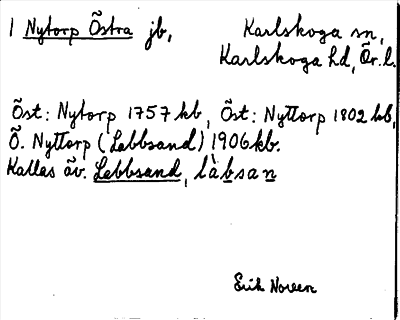 1 Nytorp Östra jb, Karlskoga sn,
Karlskoga hd, Ör. l.
Öst: Nytorp 1757 kb, Öst: Nyttorp 1802 kb,
Ö. Nyttorp (Labbsand) 1906 kb.
Kallas äv. Labbsand, làbsan
Erik Noreen